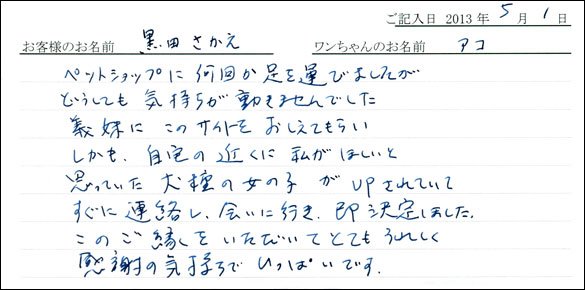 ご記入日 2013年 5月 1日
お客様のお名前 黒田 さかえ ワンちゃんのお名前 アコ
ペットショップに何回か足を運びましたが
どうしても気持ちが動きませんでした
義妹にこのサイトをおしえてもらい
しかも、自宅の近くに私がほしいと
思っていた犬種の女の子がUPされていて
すぐに連絡し、会いに行き、即決定しました。
このご縁をいただいてとてもうれしく
感謝の気持ちでいっぱいです。